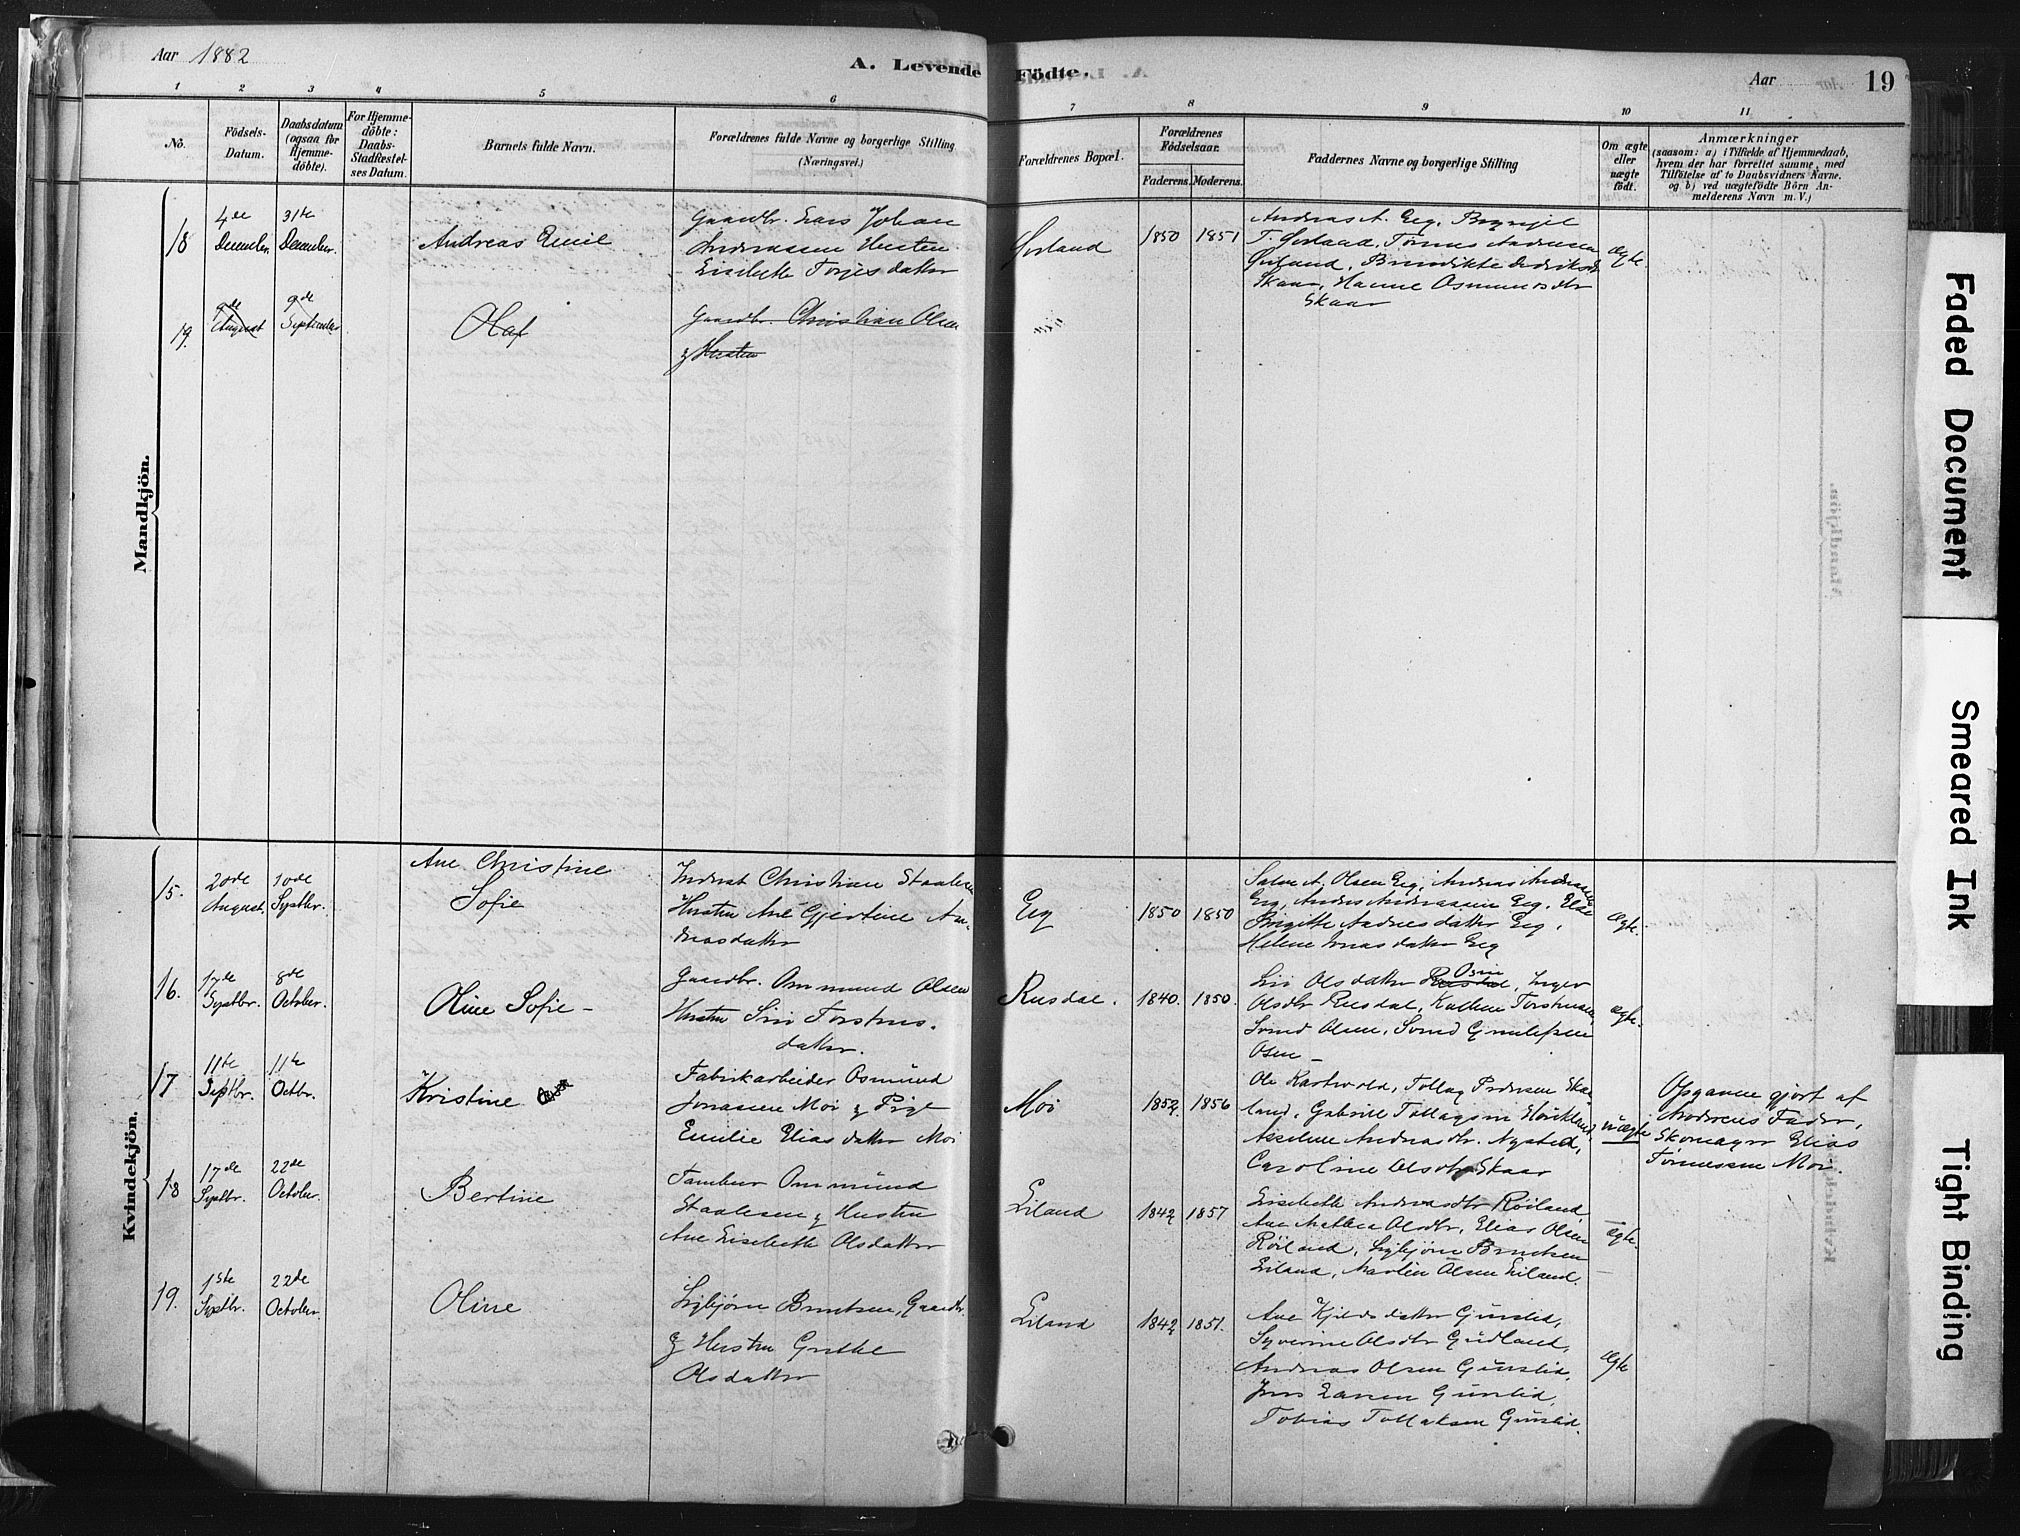 Aar 1882
A. Levende Födte.
Aar
19
1 2 3 4 5 6 7 8 9 10 11
No.
Födsels-
Datum.
Daabsdatum
(ogsaa for
Hjemme-
döbte).
For Hjemme-
döbte:
Daabs-
Stadfæstel-
ses Datum.
Barnets fulde Navn.
Forældrenes fulde Navne og borgerlige Stilling
(Næringsvei.)
Forældrenes Bopæl.
Forældrenes
Födselsaar.
Faderens. Moderens.
Faddernes Navne og borgerlige Stilling
Om ægte
eller
uægte
födt.
Anmærkninger
(saasom: a) i Tilfælde af Hjemmedaab,
hvem der har forrettet samme, med
Tilföielse af to Daabsvidners Navne.
og b) ved uægtefödte Börn An-
melderens Navn m. V.)
Mandkjön.
18
4de
December.
31te
December.
Andreas Emil
Gaardbr. Lars Johan
Andreassen Hustru
Elisebeth Torjesdatter
1850
1851
Andreas A. Eeg,
Skaar, Hanne Osmundsdtr
Skaar
Ægte.
19.
9de
August
9de
September
Olaf
Gaardbr. Christian Olsen
& Hustru
Kvindekjön.
15.
20de
August.
10de
Septbr.
Ane Christine
Sofie
Inderst Christian Staalesen
Hustru Ane Gjertine An-
dreasdatter
Eeg
1850
1850
Salve A. Olsen Eeg, Andreas Andreassen
Eeg, Anders Andreassen Eeg, Else
Birgitte Andreasdatter Eeg,
Helene Jonasdatter Eeg
Ægte.
16.
17de
Septbr.
8de
October.
Oline Sofie
Gaardbr. Ommund Olsen
Hustru Siri Torstens-
datter.
Rusdal.
1840.
1850.
Siri Olsdatter Rusdal Osen, Inger
Olsdtr Rusdal, Torstensen,
Svend Olsen, Svend Gunleifsen
Osen
ægte.
17
11te
Septbr.
11te
Octbr.
Kristine
Fabrikarbeider Osmund
Jonassen Moi & Pige
Emilie Eliasdatter Moi
Moi
1852.
1856
Ole Hartvold, Tollag Pedersen Skaa-
land, Gabriel Tollagsen
Asseline Andreasdtr. Nysted,
Caroline Olsdtr Skaar
uægte
Opgaven gjort af
Moderens Fader,
Skomager Elias
Tønnessen Moi.
18
17de
Septbr.
22de
October.
Bertine
Tambur Ommund
Staalesen & Hustru
Ane Elisebeth Olsdatter
Eiland
1842
1857
Elisebeth Andreasdtr Røiland,
Ane Mathea Olsdtr, Elias Olsen
Røiland, Sigbjørn Berntsen
Eiland, Martin Olsen Eiland.
ægte.
19.
1ste
Septbr.
22de
October.
Oline
Sigbjørn Berntsen, Gaardbr.
& Hustru Grethe
Olsdatter
Eiland
1842
1851.
Ane Kjeldsdatter Gunslid,
Syverine Olsdtr Gudland,
Andreas Olsen Gunslid,
Jens Larsen Gunslid,
Tobias Tollaksen Gunslid.
Ægte
Faded Document
Smeared Ink
Tight Binding